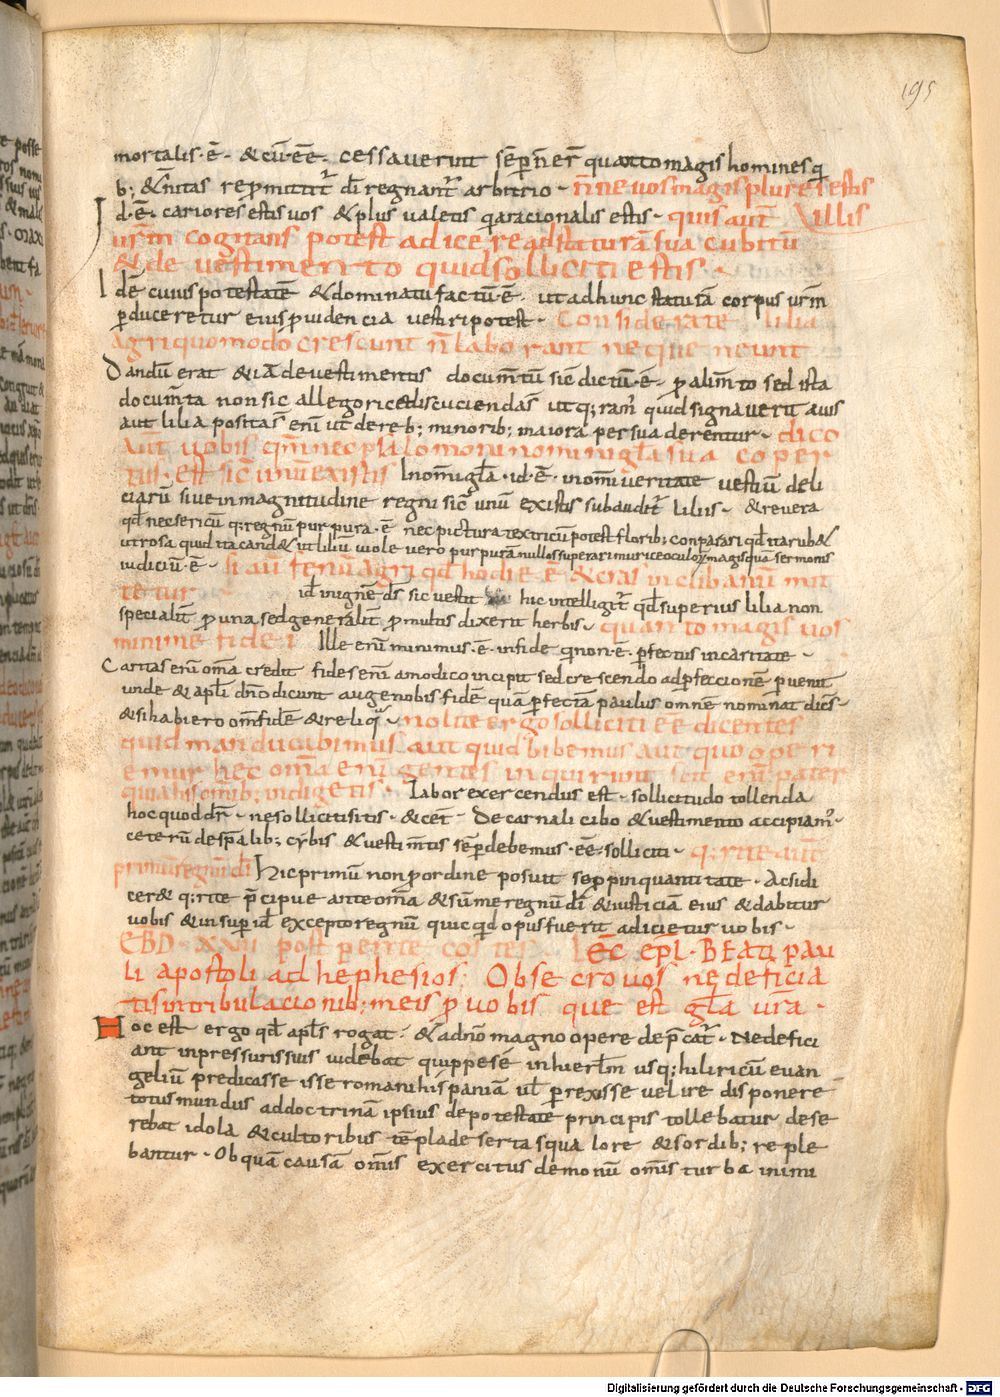 195
mortalis·ē· &cū·ēē· cessaverint sēp n̄ er̄ quantomagis homines q
b; &n̄itas repmittit̄ dī regnant̄ arbitrio· n̄ne vos magis plures estis
Id·ē· cariores estis vos &plus valetis qaracionalis estis· quis aut̄ Xillis
urm̄ cogitans potest adicere ad staturā sua cubitū
& de vestimento quid solliciti estis·
Idē cuius potestatē &dominatu factū·ē· ut adhunc statū sā corpus urm̄
pduceretur eius pvidencia vestiri potest· Considerate lilia
agri quomodo crescunt n̄ laborant neque neunt
Dandū erat &iā de vestimentis documt̄ū sic̄ dictū·ē· p alim̄to sed ista
docum̄ta non sic allegorice discuciendā s̄ ut q;ram̄ quid signaverit avis
aut lilia positas̄ enī ut de reb; minorib; maiora persuaderentur· dico
aut̄ vobis qm̄ nec salomon in omni gl̄a sua coper
tus·est sic̄ unū ex istis In om̄i gl̄a·id·ē· in om̄i veritate vestiū deli
ciarū sive in magnitudine regni sic̄ unū ex istis subaudit̄ liliis· &revera
qd̄ nec sericū q; regnū purpura·ē nec pictura textricū potest florib; conparari qd̄ ita rub&
ut rosa quid ita cand& ut liliū viole vero purpurā nullo superari murice oculoꝝ magis quā sermonis
iudiciū·ē· si aut̄ fenū agri qd̄ hodie ē &cras in clibanū mit
tetur id̄ in ignē ds̄ sic vestit hic intelligit̄ qd̄ superius lilia non
specialit̄ p una sed generalit̄ p multis dixerit herbis· quanto magis vos
minime fidei Ille enī minimus·ē· in fide qi non·ē· pfectus in caritate·
Caritas enī om̄a credit fides enī a modico incipit sed crescendo ad pfeccionē pvenit
unde &apl̄i dn̄o dicunt auge nobis fidē quā pfectā paulus omnē nominat dic̄s·
&si habuero om̄ fidē &reliq· nolite ergo solliciti eē dicentes
quid manducabimus aut quid bibemus aut quo operi
emur hec om̄a enī gentes inquirunt scit enī pater
quia his om̄ib; indigetis· Labor exercendus est· sollicitudo tollenda
hoc quod dr̄· ne solliciti sitis· &cet̄· De carnali cibo &vestimento accipiam̄·
ceterū de spalib; cybis &vestim̄tis sēp debemus·ēē·solliciti· q;rite aut̄
primū regnū dī Hic primū non p ordine posuit sep pinquantitate· Ac si di
cer& q;rite pcipue ante om̄a &sūme regnū dī &iusticiā eius &dabitur
vobis &insup id̄ excepto regnū quicqd̄ opus fuerit adicietur vobis·
EBD· XXII post pentecosten· Lec̄ epl̄· Beati pau
li apostoli ad hephesios; Obsecro vos ne deficia
tis in tribulacionib; meis p vobis que est gl̄a vr̄a·
Hoc est ergo qd̄ apl̄s rogat· &ad n̄o magno opere depcat̄· Ne defici
ant in pressuris suis videbat quippe sē in hierl̄m usq; hiliricū evan
geliū predicasse isse romā in hispaniā ul̄ perexisse vel ire disponere
totus mundus ad doctrinā ipsius de potestate principis tollebatur dese
rebat idola &cultoribus tēpla deserta squalore &sordib; reple
bantur· Ob quā causā om̄is exercitus demonū om̄is turba inimi
Digitalisierung gefördert durch die Deutsche Forschungsgemeinschaft - DFG